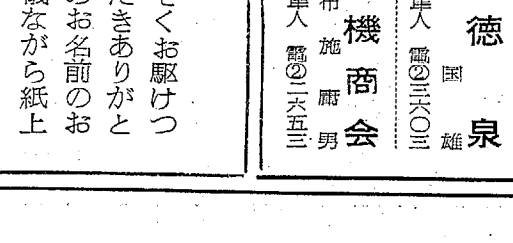 徳泉
国雄
人 電②三六〇三
機商会
布施 男
隼人 電②二六五三
くお駆けつ
きありがと
のお名前のお
儀ながら紙上